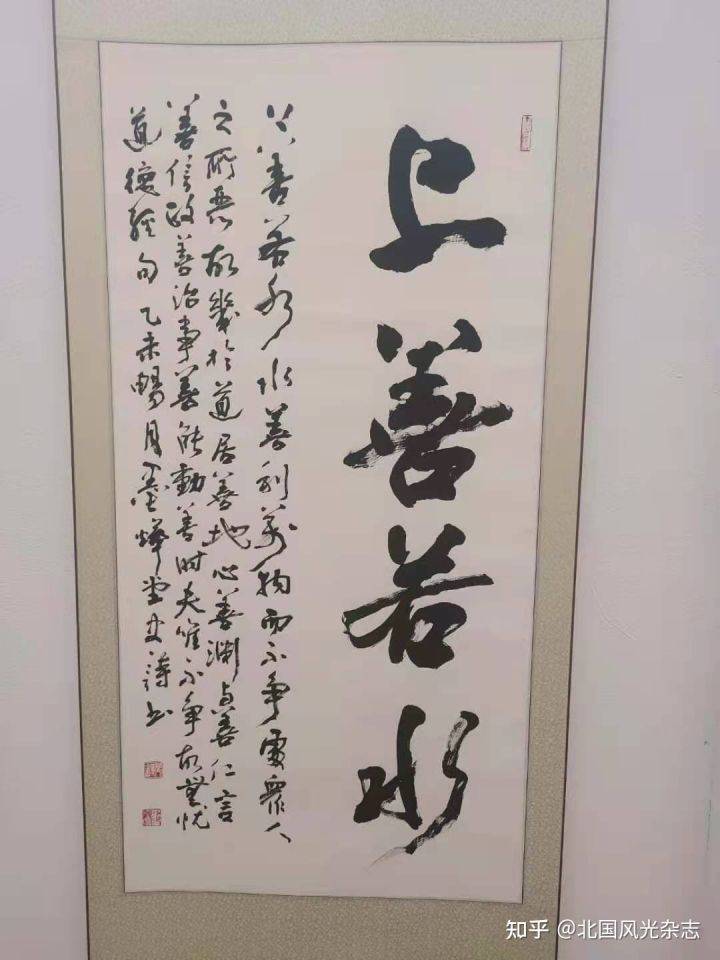 上善若水
上善若水水善利万物而不争处众人
之所恶故几於道居善地心善渊与善仁言
善信政善治事善能动善时夫唯不争故无忧
道德经句乙未畅月墨烨堂史诗书
知乎 @北国风光杂志